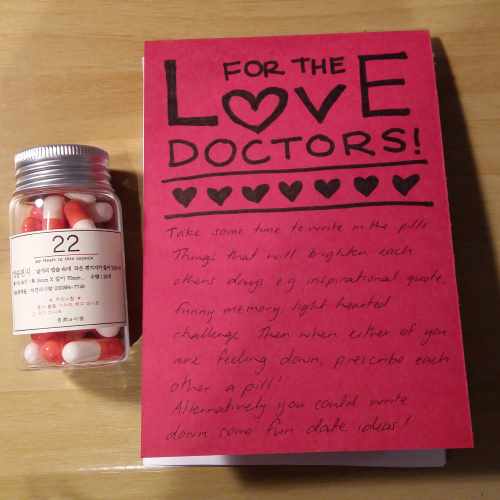 22
FOR THE
LOVE
DOCTORS!
Take some time to write in the pills
Things that will brighten each
others days e.g inspirational quote,
funny memory, light hearted
challenge. Then when either of you
are feeling down, prescribe each
other a pill!
Alternatively you could write
down some fun date ideas!